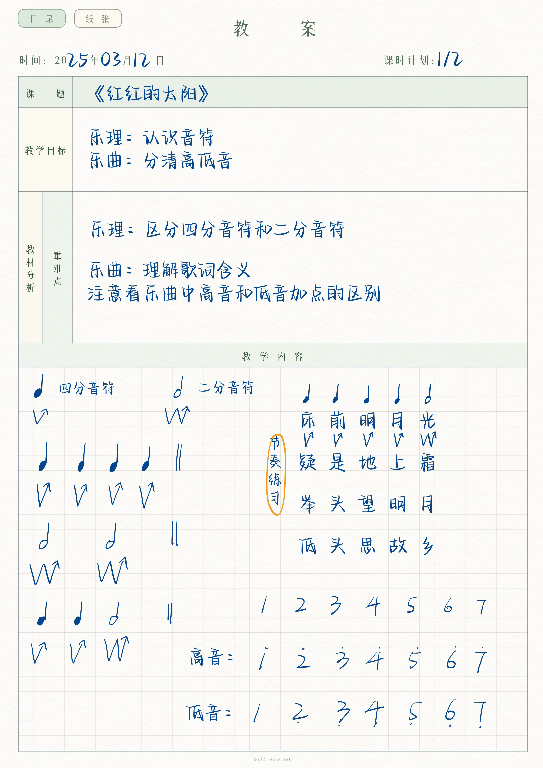 目录 纸张
教 案
时间: 2025年03月12日 课时计划: 1/2
课 题 《红红的太阳》
教学目标
乐理: 认识音符
乐曲: 分清高低音
教材分析
重难点
乐理: 区分四分音符和二分音符
乐曲: 理解歌词含义
注意看乐曲中高音和低音加点的区别
教学内容
四分音符 二分音符
节奏练习
床 前 明 月 光
疑 是 地 上 霜
举 头 望 明 月
低 头 思 故 乡
1 2 3 4 5 6 7
高音: 1 2 3 4 5 6 7
低音: 1 2 3 4 5 6 7